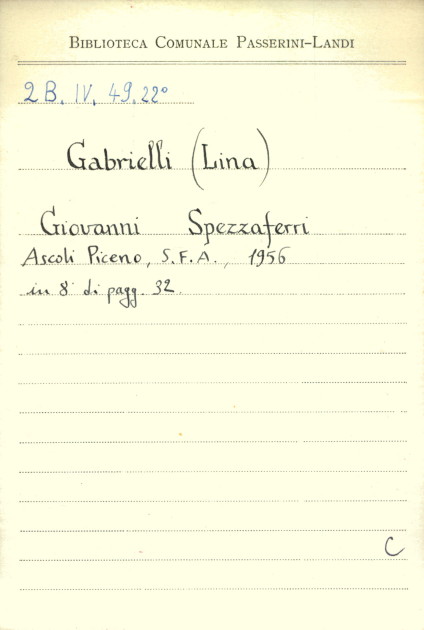 BIBLIOTECA COMUNALE PASSERINI-LANDI
2B. IV. 49.22°
Gabrielli (Lina)
Giovanni Spezzaferri
Ascoli Piceno, S.F.A., 1956
in 8° di pagg. 32.
C